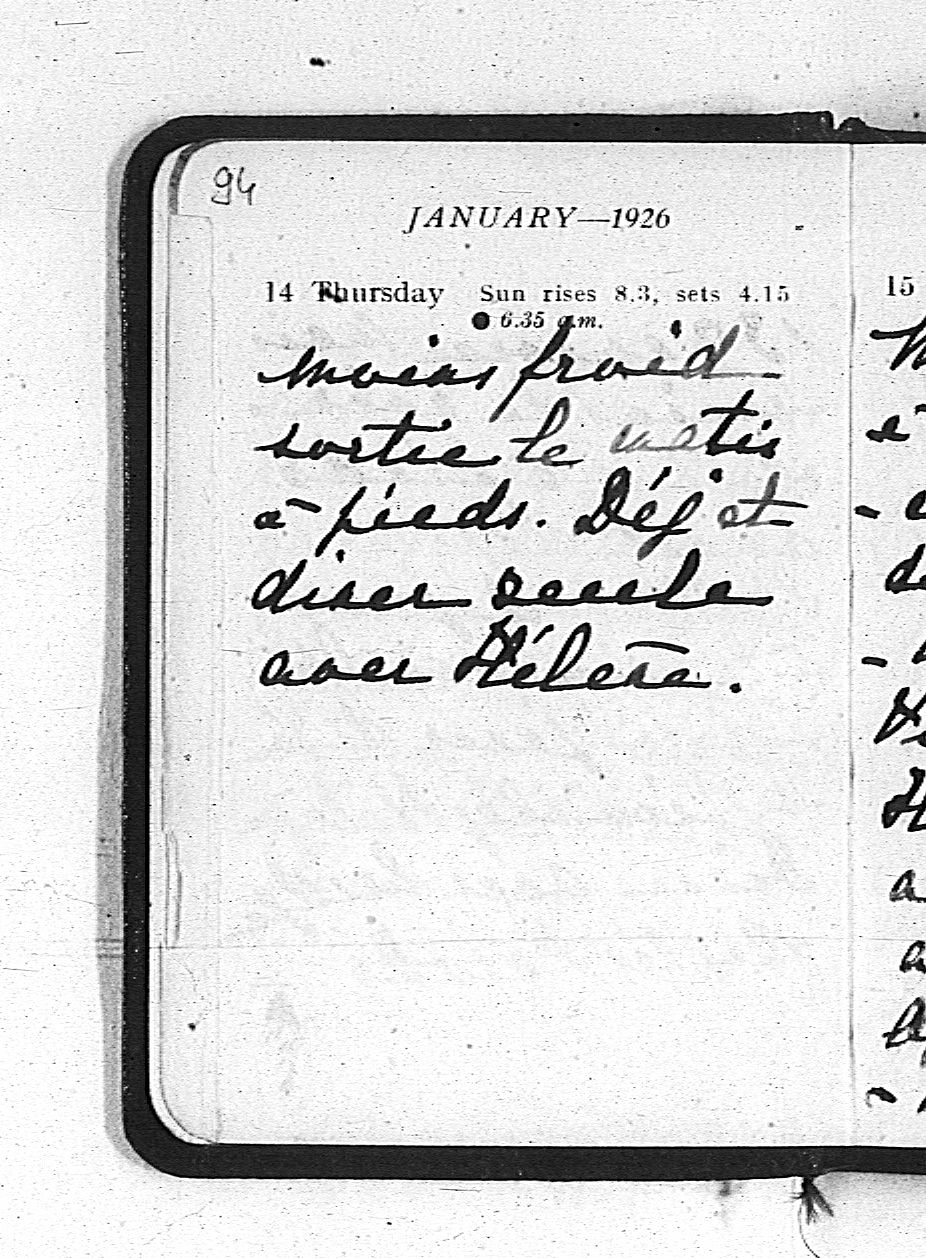 94
JANUARY—1926
14 Thursday Sun rises 8.3, sets 4.15
● 6.35 a.m.
moins froid
sortie le matin
à pieds. Déj et
diner seule
avec Hélène.
15